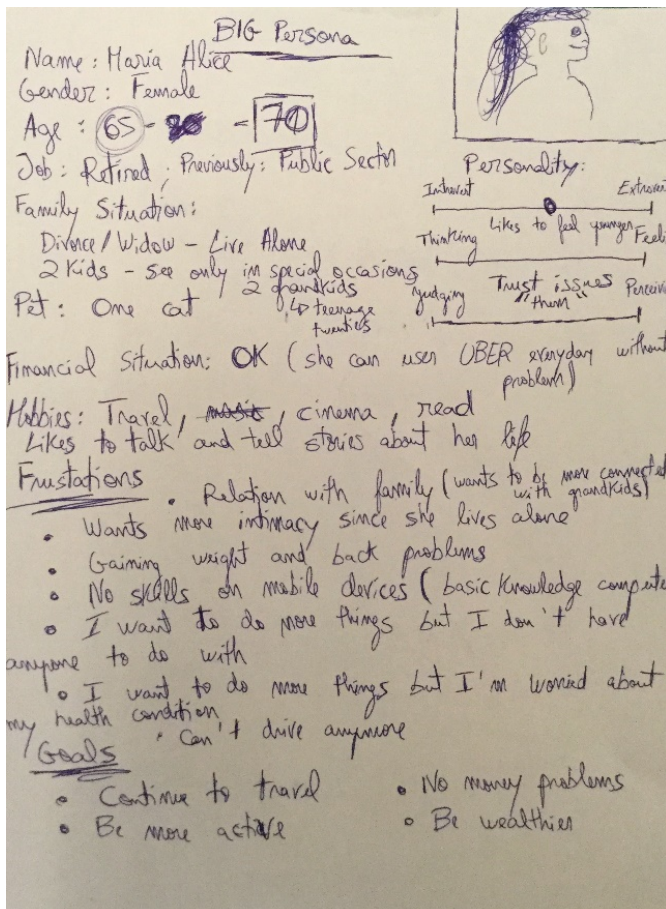 BIG Persona
Name: Maria Alice
Gender: Female
Age: 65 - = 70
Job: Retired; Previously: Public Sector
Family Situation:
Divorce/Widow - Live Alone
2 Kids - See only in special occasions
2 grandkids
↳ teenage
twenties
Pet: One cat
Personality:
Introvert Extrover
Likes to feel younger
Thinking Feeli
Trust issues
"them"
Judging Perceivi
Financial Situation: OK (she can user UBER everyday without
problem)
Hobbies: Travel, music, cinema, read
Likes to talk and tell stories about her life
Frustations
• Relation with family (wants to be more connected
with grandkids)
• Wants more intimacy since she lives alone
• Gaining weight and back problems
• No skills on mobile devices (basic knowledge compute
• I want to do more things but I don't have
anyone to do with
• I want to do more things but I'm worried about
my health condition
• Can't drive anymore
Goals
• Continue to travel
• Be more active
• No money problems
• Be wealthier